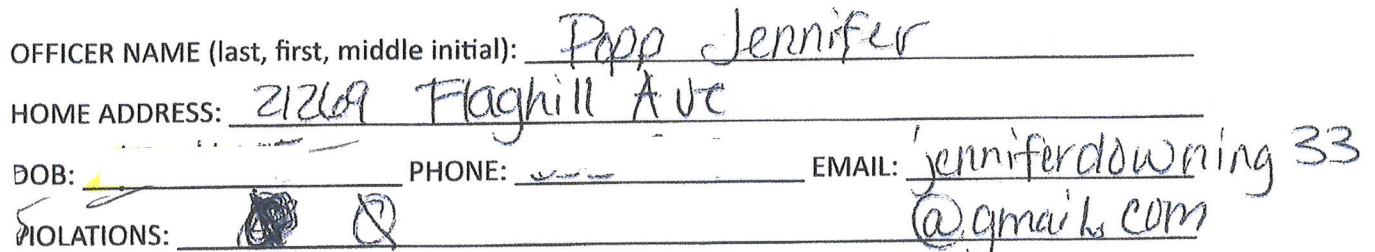 OFFICER NAME (last, first, middle initial): Popp Jennifer
HOME ADDRESS: 21269 Flaghill Ave
DOB: PHONE: EMAIL: jenniferdowning33
VIOLATIONS: @gmail.com